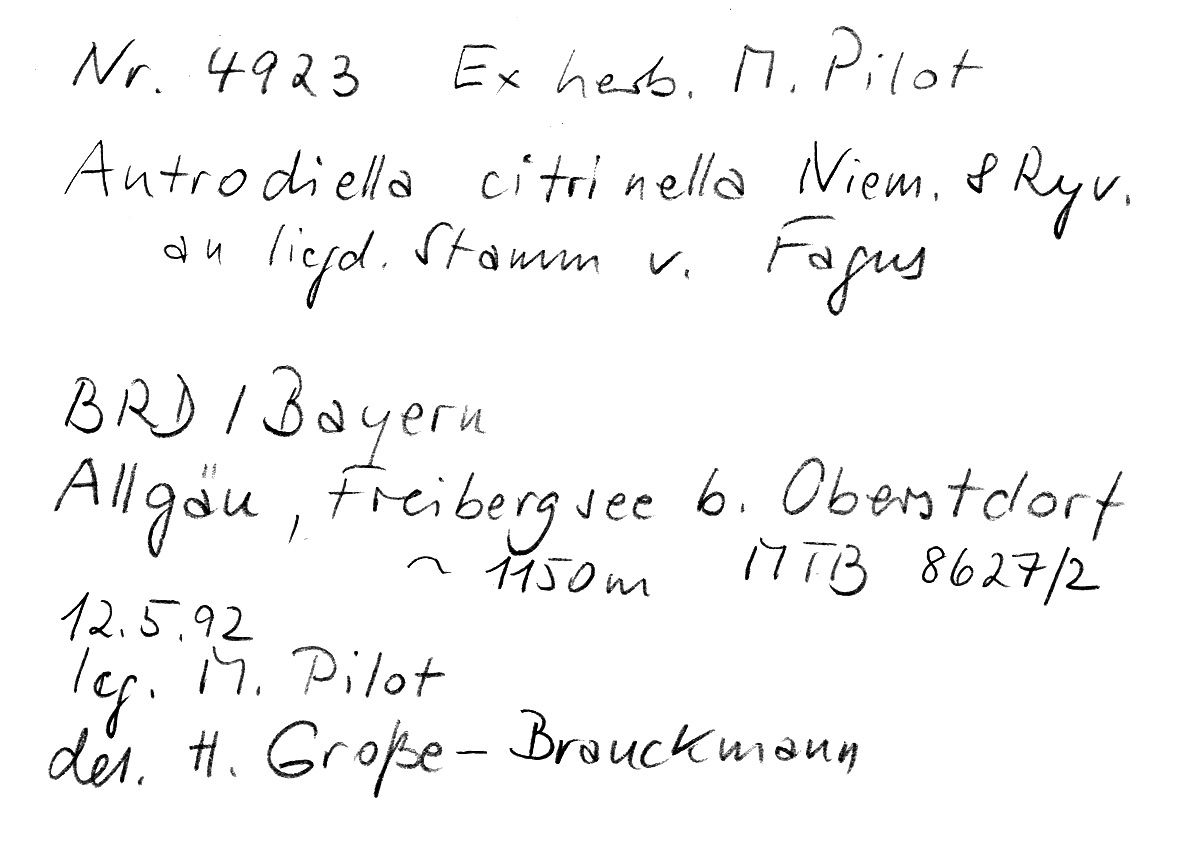 Nr. 4923 Ex herb. M. Pilot
Antrodiella citrinella Niem. & Ryv.
an liegd. Stamm v. Fagus
BRD / Bayern
Allgäu, Freibergsee b. Oberstdorf
~ 1150m MTB 8627/2
12.5.92
leg. M. Pilot
det. H. Große-Brauckmann